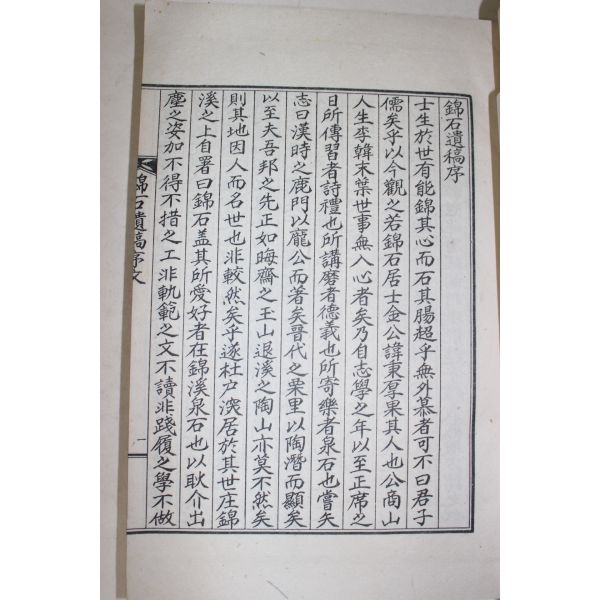 錦石遺稿序
士生於世有能錦其心而石其腸超乎無外慕者可不曰君子
儒矣乎以今觀之若錦石居士金公諱東厚果其人也公商山
人生李韓末葉世事無入心者矣乃自志學之年以至正席之
日所傳習者詩禮也所講磨者德義也所寄樂者泉石也嘗矢
志曰漢時之鹿門以龐公而著矣晉代之栗里以陶潛而顯矣
以至夫吾邦之先正如晦齋之玉山退溪之陶山亦莫不然矣
則其地因人而名世也非較然矣乎遂杜戶深居於其世庄錦
溪之上自署曰錦石盖其所愛好者在錦溪泉石也以耿介出
塵之姿加不得不措之工非軌範之文不讀非踐履之學不做
錦石遺稿序文
一